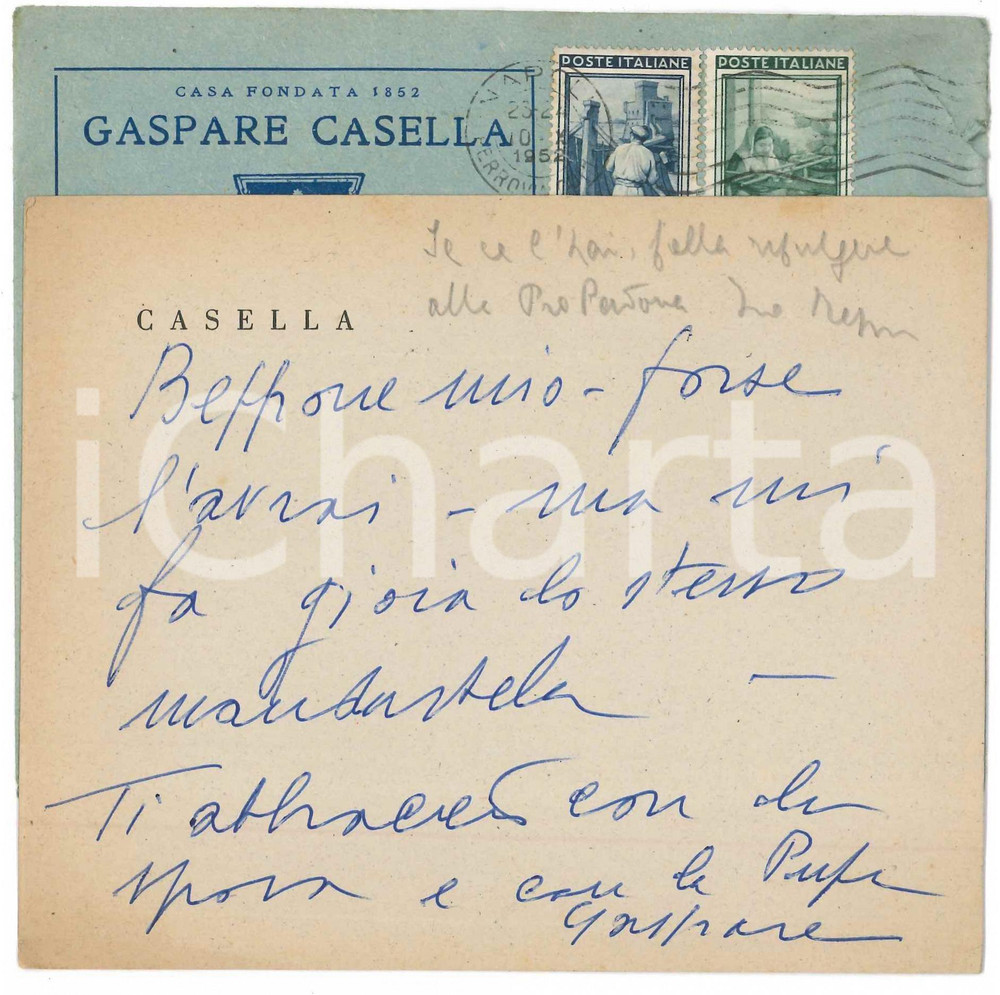 CASA FONDATA 1852
GASPARE CASELLA
POSTE ITALIANE POSTE ITALIANE
1952
Se ce l'hai, falla rifulgere
alla Pro Padova
CASELLA
Beppone mio - forse
l'avrai - ma mi
fa gioia lo stesso
mandartela —
Ti abbraccio con la
sposa e con la Pupa
Gaspare
iCharta